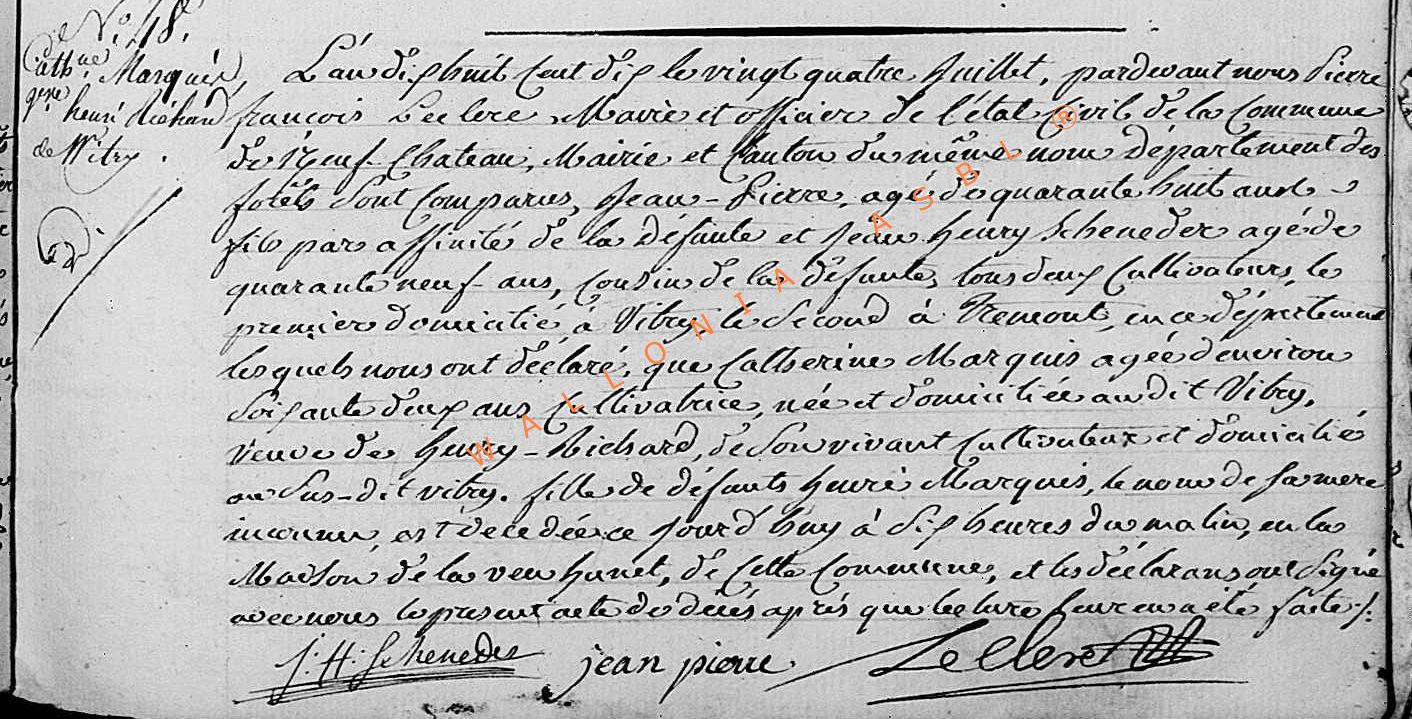 de N.° 48.
Cath.ne Marquis,
henri Richard
de Witry.
L'an dix huit Cent dix le vingt quatre Juillet, pardevant nous Pierre
francois Leclere Maire et officier de l'état Civil de la Commune
de Neuf-Chateau, Mairie et Canton du même nom département des
forêts Sont Comparus, Jean-Pierre, agé de quarante huit ans
fils par affinité de la défunte et Jean Henry Scheneder agé de
quarante neuf ans, Cousin de la défunte, tous deux Cultivateurs, le
premier domicilié à Vitry, le Second à Tremont, en ce département
lesquels nous ont déclaré, que Catherine Marquis agée d'environ
Soixante deux ans Cultivatrice, née et domiciliée audit Vitry,
veuve de Henry-Richard, de Son vivant Cultivateur et domicilié
au Sus-dit vitry. fille de défunts henri Marquis, le nom de sa mere
inconnu, est decedée ce jourd'huy à Six heures du matin, en la
Maison de la veu hanet, de Cette Commune, et les déclarans ont Signé
avec nous le present acte de décés après que lecture leur en a été faite./.
J: H: Scheneder jean pierre Leclere
WALLONIA ASBL ®